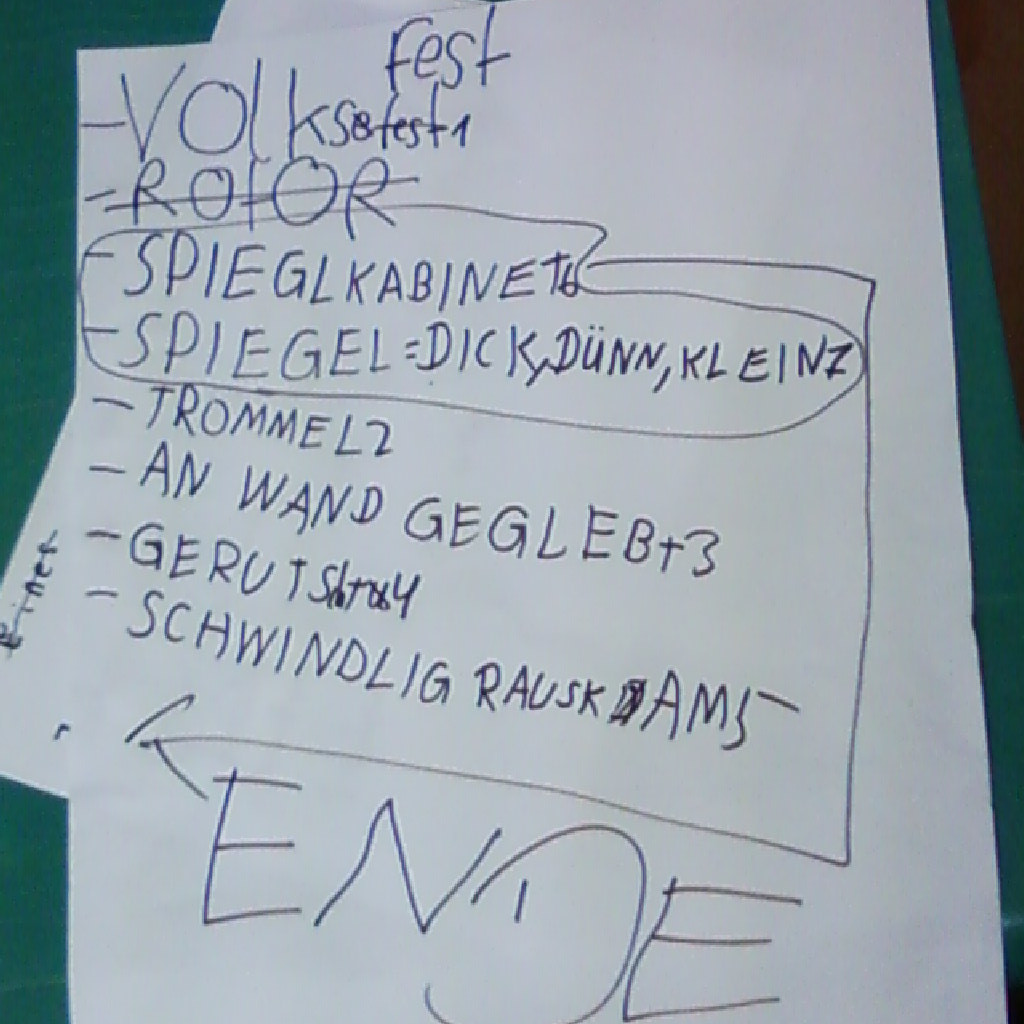 fest
-VOlksfest1
-ROtOR
-SPIEGLKABINET6
-SPIEGEL=DICK,DÜNN,KLEIN7
-TROMMEL2
-AN WAND GEGLEBT3
-GERUTSht4
-SCHWINDLIG RAUSKAM5
ENDE